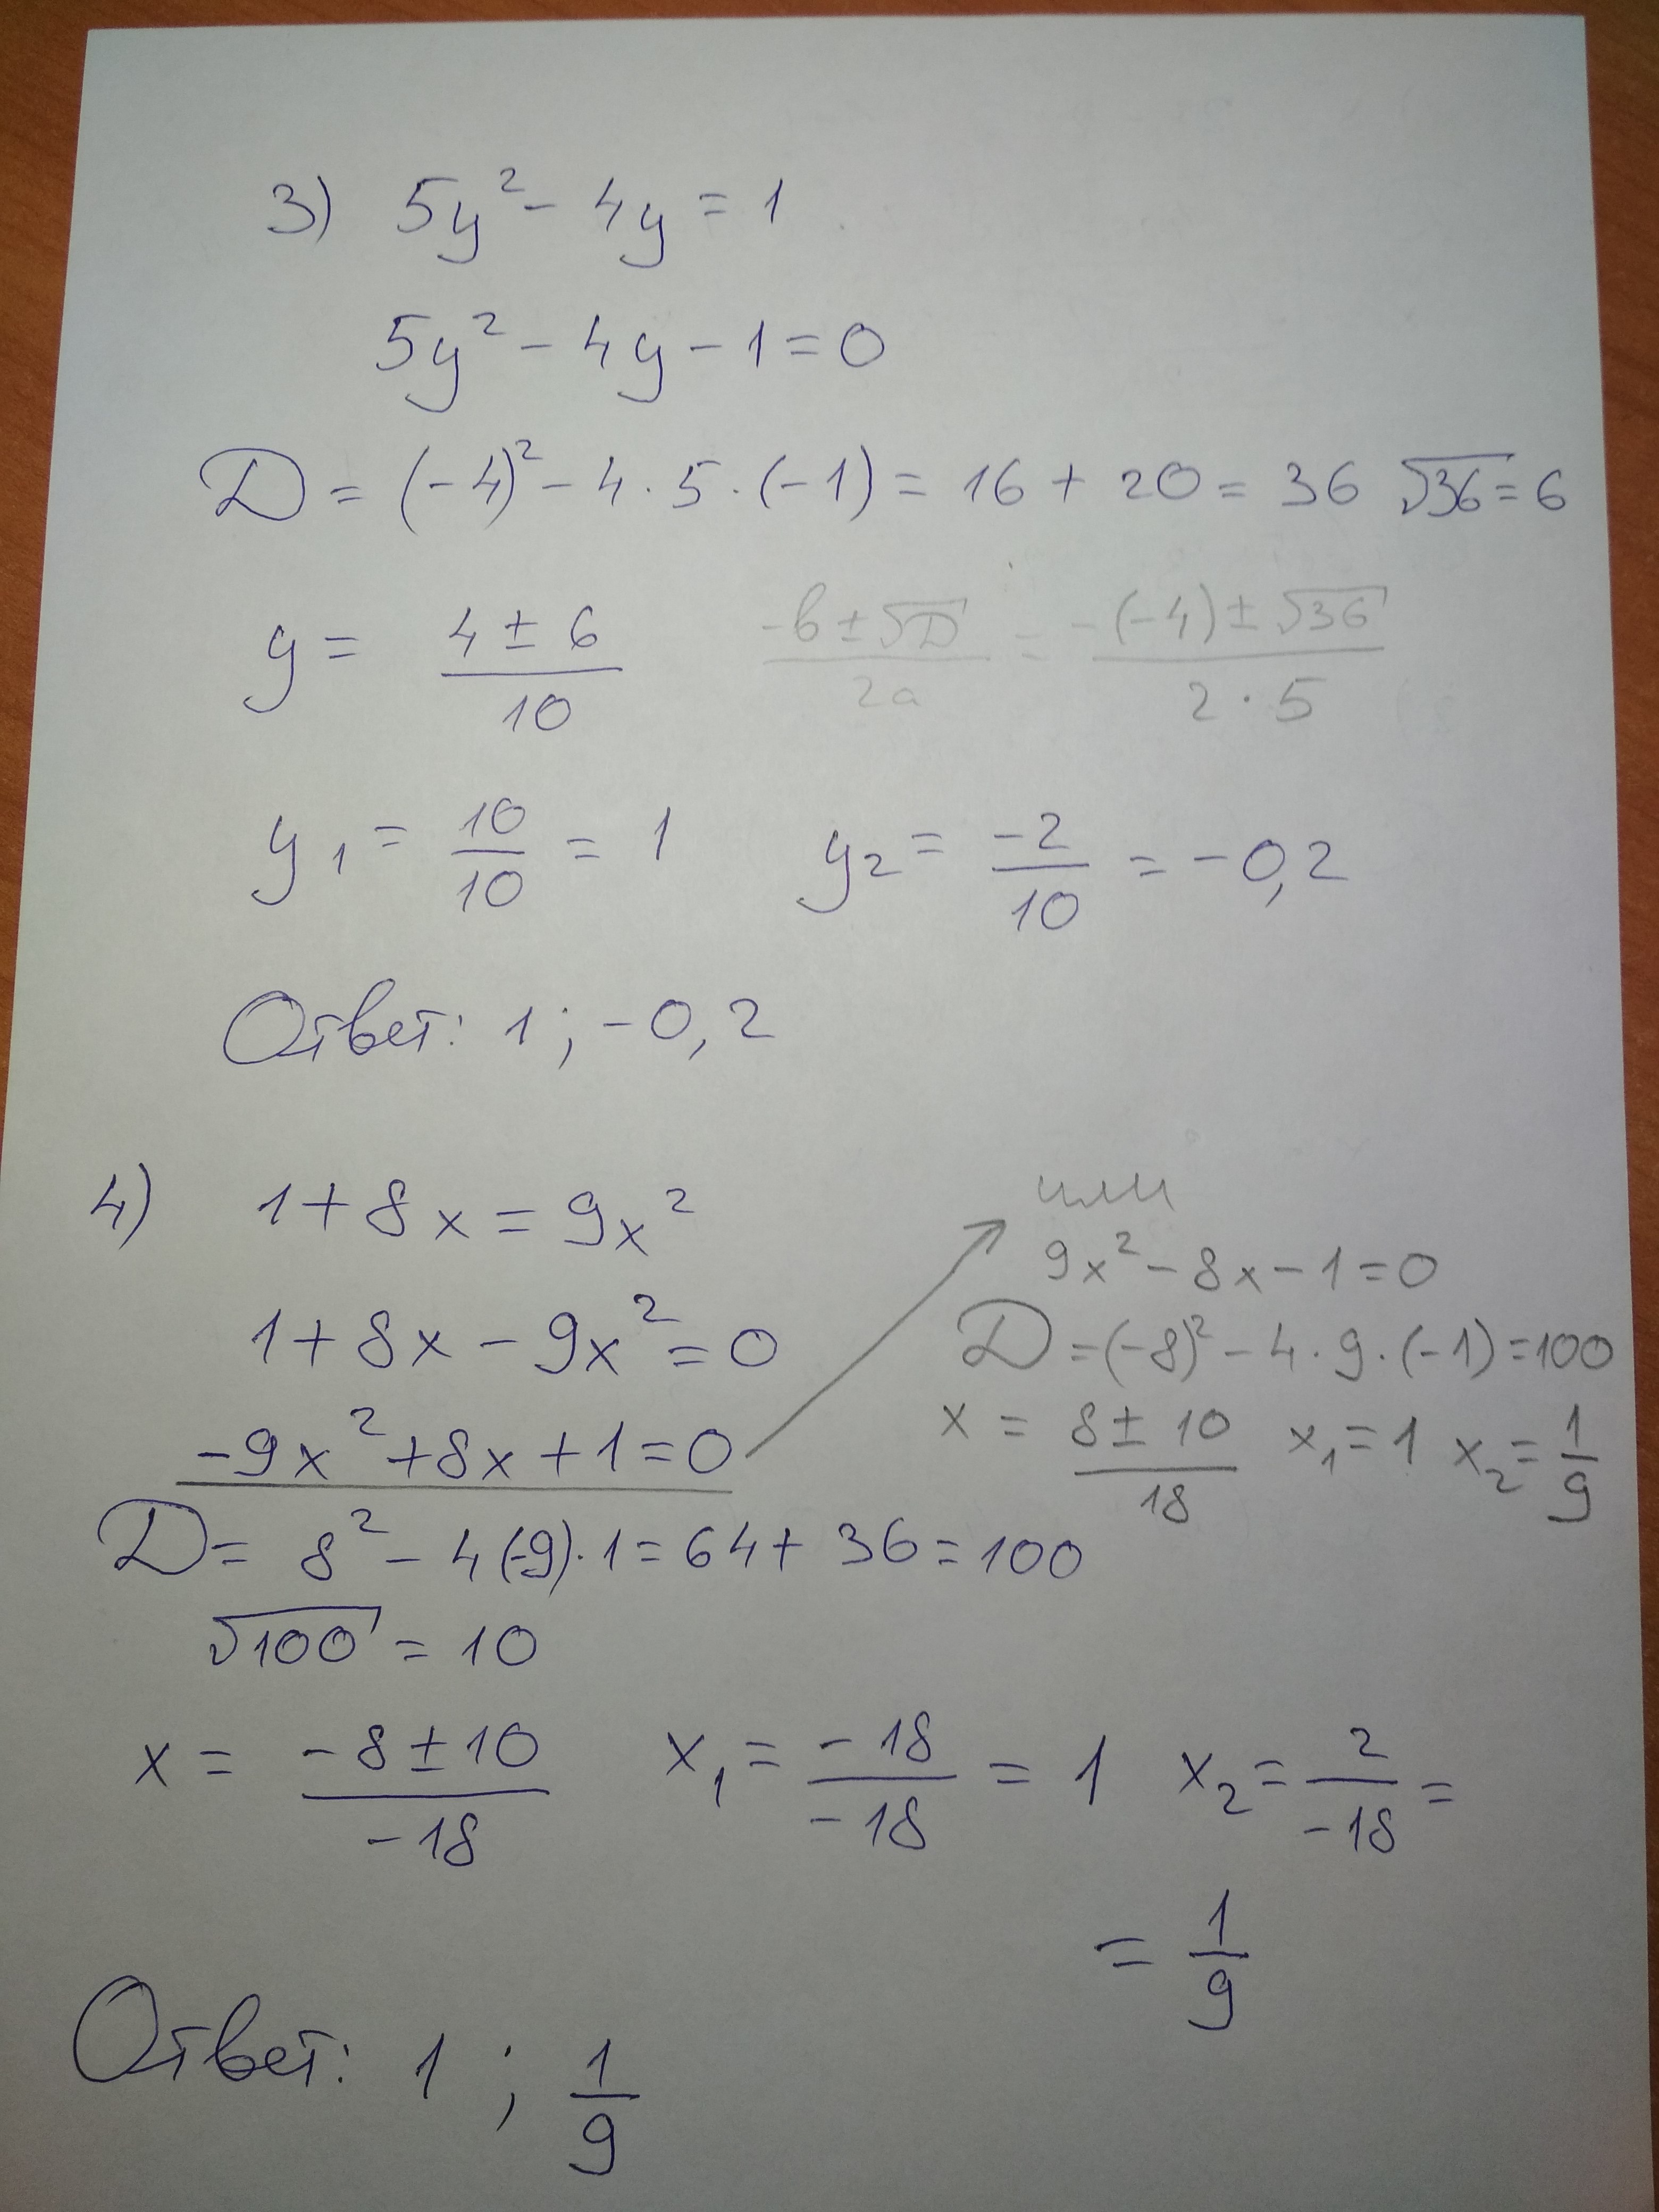 3) 5y² - 4y = 1
5y² - 4y - 1 = 0
D = (-4)² - 4 · 5 · (-1) = 16 + 20 = 36 √36 = 6
y = (4 ± 6)/10 (-b ± √D)/2a = (-(-4) ± √36)/(2 · 5)
y₁ = 10/10 = 1 y₂ = -2/10 = -0,2
Ответ: 1; -0,2
4) 1 + 8x = 9x²
1 + 8x - 9x² = 0
-9x² + 8x + 1 = 0
или
9x² - 8x - 1 = 0
D = (-8)² - 4 · 9 · (-1) = 100
x = (8 ± 10)/18 x₁ = 1 x₂ = 1/9
D = 8² - 4(-9) · 1 = 64 + 36 = 100
√100 = 10
x = (-8 ± 10)/-18 x₁ = -18/-18 = 1 x₂ = 2/-18 =
= 1/9
Ответ: 1; 1/9